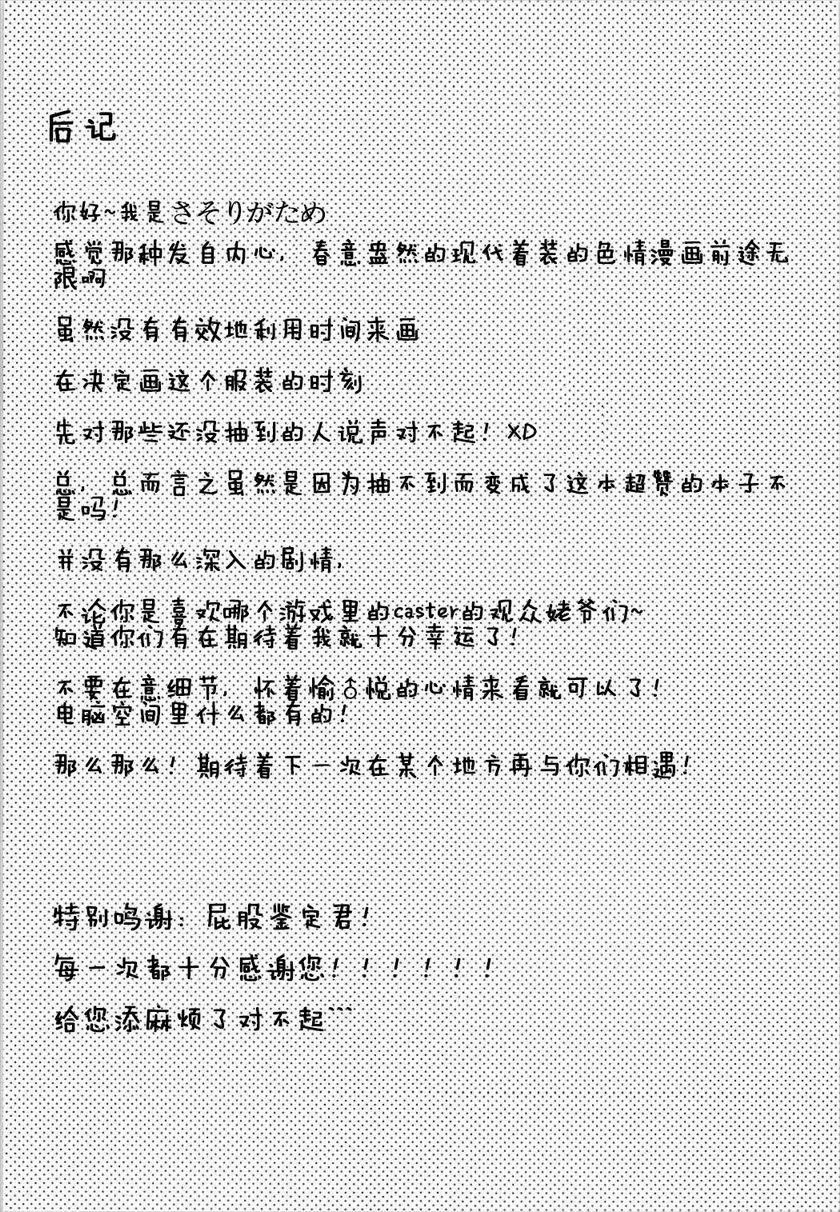 后记
你好~我是さそりがため
感觉那种发自内心，春意盎然的现代着装的色情漫画前途无
限啊
虽然没有有效地利用时间来画
在决定画这个服装的时刻
先对那些还没抽到的人说声对不起！XD
总，总而言之虽然是因为抽不到而变成了这本超赞的本子不
是吗！
并没有那么深入的剧情，
不论你是喜欢哪个游戏里的caster的观众姥爷们~
知道你们有在期待着我就十分幸运了！
不要在意细节，怀着愉♂悦的心情来看就可以了！
电脑空间里什么都有的！
那么那么！期待着下一次在某个地方再与你们相遇！
特别鸣谢：屁股鉴定君！
每一次都十分感谢您！！！！！！
给您添麻烦了对不起```